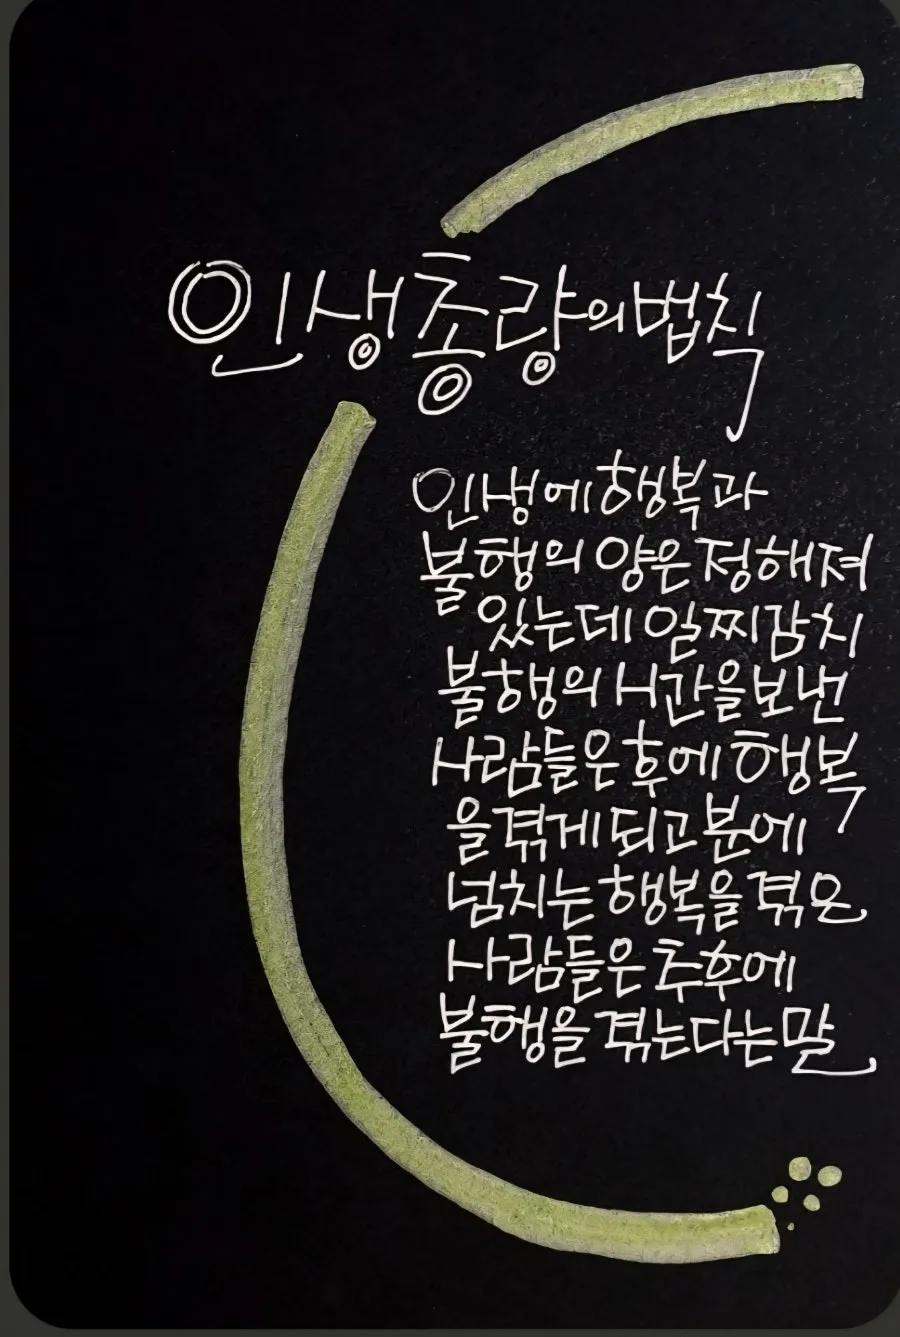 인생총량의법칙
인생에 행복과
불행의 양은 정해져
있는데 일찌감치
불행의 시간을 보낸
사람들은 후에 행복
을 겪게 되고 분에
넘치는 행복을 겪은
사람들은 추후에
불행을 겪는다는 말